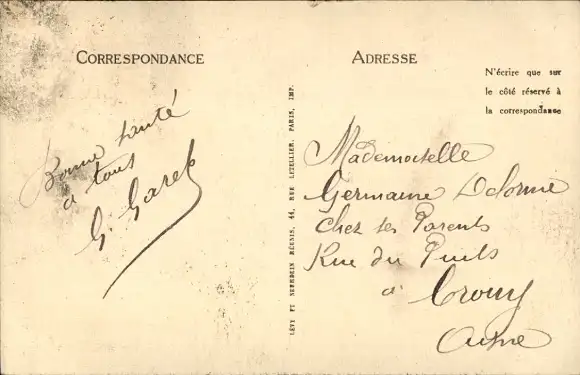 CORRESPONDANCE
Bonne santé
à tous
G. Garel
LÉVY ET NEURDEIN RÉUNIS, 44, RUE LETELLIER, PARIS, IMP.
ADRESSE
N'écrire que sur
le côté réservé à
la correspondance
Mademoiselle
Germaine Delorme
Chez ses Parents
Rue du Puits
à Crouy
Aisne